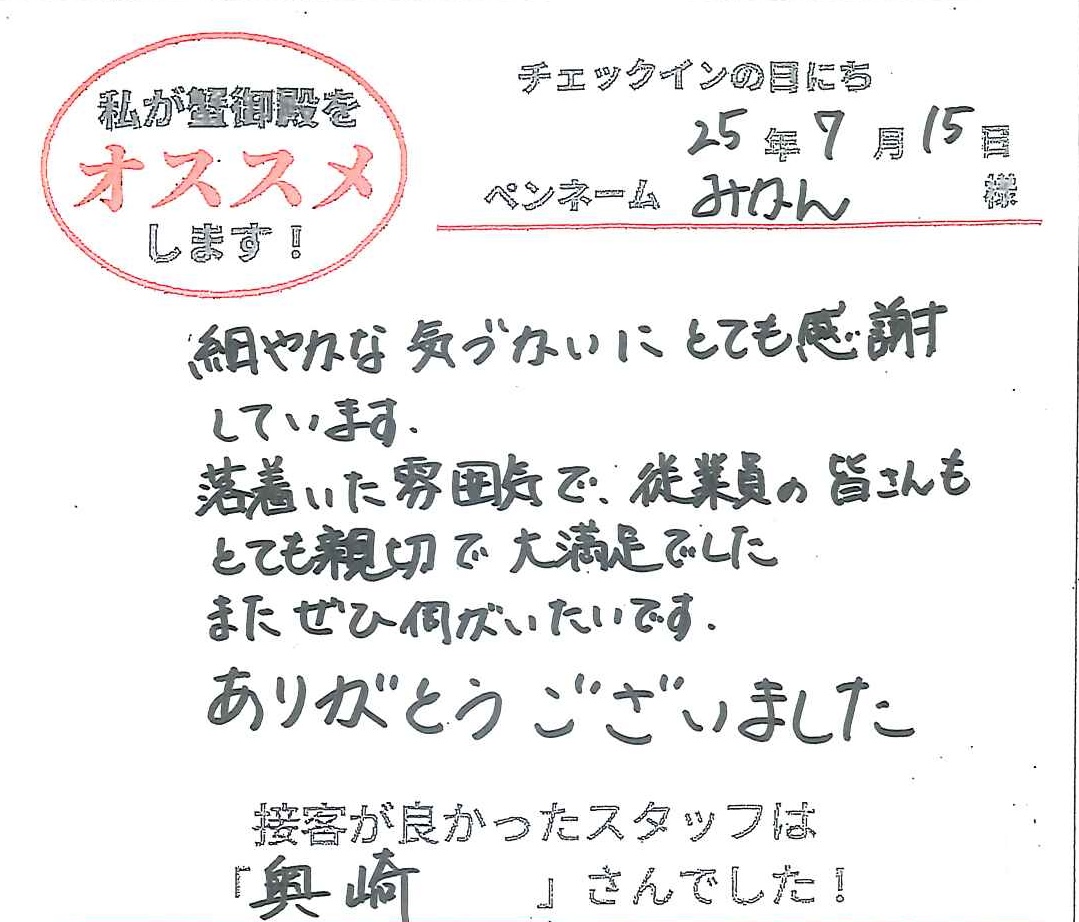 私が蟹御殿を
オススメ
します！
チェックインの日にち
25年7月15日
ペンネーム みかん 様
細やかな気づかいにとても感謝
しています.
落着いた雰囲気で、従業員の皆さんも
とても親切で大満足でした
またぜひ伺がいたいです.
ありがとうございました
接客が良かったスタッフは
「奥崎 」さんでした！